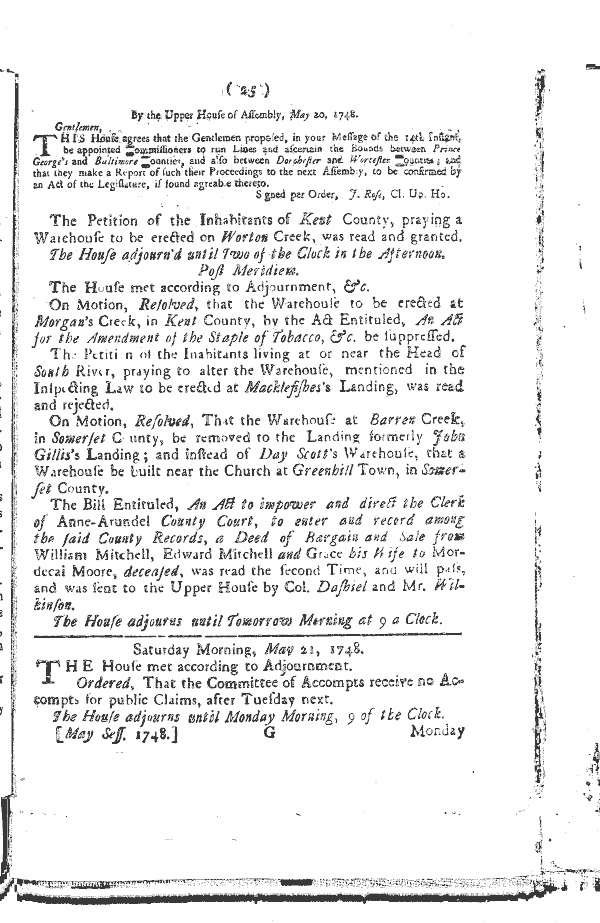 ( 25 )
By the Upper Houſe of Aſſembly, May 20, 1748.
Gentlemen,
THIS Houſe agrees that the Gentlemen propoſed, in your Meſſage of the 14th Inſtant,
be appointed Commiſſioners to run Lines and aſcertain the Bounds between Prince
George's and Baltimore Counties, and alſo between Dorcheſter and Worceſter Counties; and
that they make a Report of ſuch their Proceedings to the next Aſſembly, to be confirmed by
an Act of the Legiſlature, if found agreable thereto.
Signed per Order, J. Roſs, Cl. Up. Ho.
The Petition of the Inhabitants of Kent County, praying a
Warehouſe to be erected on Worton Creek, was read and granted.
The Houſe adjourn'd until Two of the Clock in the Afternoon.
Poſt Meridiem.
The Houſe met according to Adjournment, &c.
On Motion, Reſolved, that the Warehouſe to be erected at
Morgan's Creek, in Kent County, by the Act Entituled, An Act
for the Amendment of the Staple of Tobacco, &c. be ſuppreſſed.
The Petition of the Inabitants living at or near the Head of
South River, praying to alter the Warehouſe, mentioned in the
Inſpecting Law to be erected at Macklefiſhes's Landing, was read
and rejected.
On Motion, Reſolved, That the Warehouſe at Barren Creek,
in Somerſet County, be removed to the Landing formerly John
Gillis's Landing; and inſtead of Day Scott's Warehouſe, that a
Warehouſe be built near the Church at Greenhill Town, in Somer-
ſet County.
The Bill Entituled, An Act to impower and direct the Clerk
of Anne-Arundel County Court, to enter and record among
the ſaid County Records, a Deed of Bargain and Sale from
William Mitchell, Edward Mitchell and Grace his Wife to Mor-
decai Moore, deceaſed, was read the ſecond Time, and will paſs,
and was ſent to the Upper Houſe by Col. Daſhiel and Mr. Wil-
kinſon.
The Houſe adjourns until Tomorrow Morning at 9 a Clock.
Saturday Morning, May 21, 1748.
THE Houſe met according to Adjournment.
Ordered, That the Committee of Accompts receive no Ac-
compts for public Claims, after Tueſday next.
The Houſe adjourns until Monday Morning, 9 of the Clock.
[May Seſſ. 1748.] G Monday